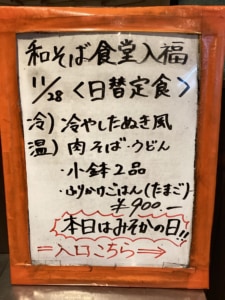 和そば食堂入福
11/28 <日替定食>
冷) 冷やしたぬき風
温) 肉そば・うどん
・小鉢2品
・ふりかけごはん(たまご)
¥900.―
本日はみそかの日!!
⇒入口こちら→